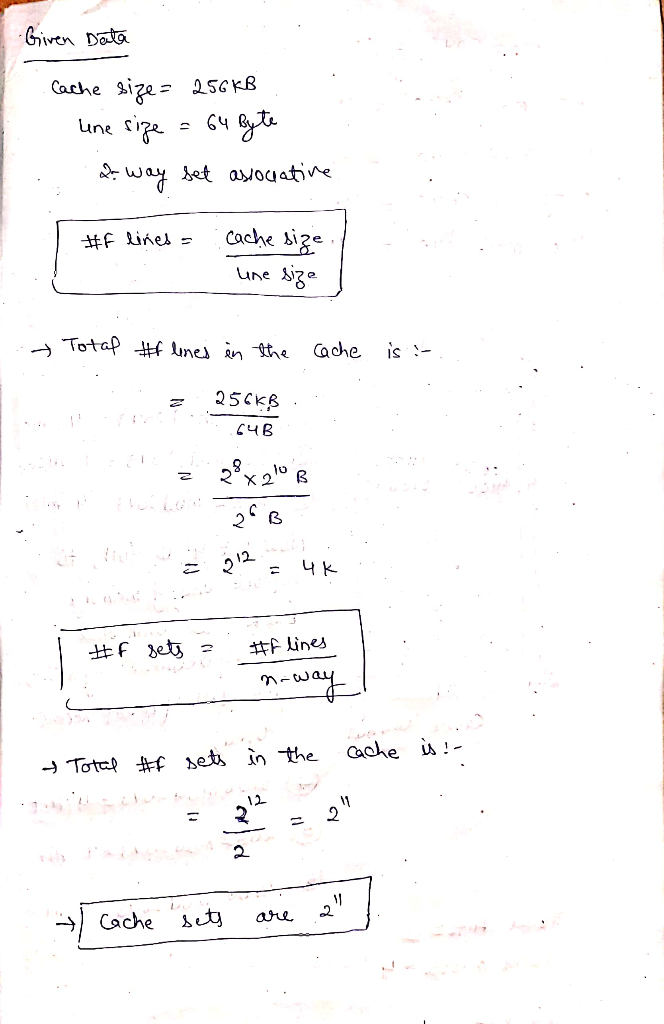 Given Data
Cache size = 256KB
Line size = 64 Byte
2-way set associative
#f lines = Cache size
Line size
→ Total #f lines in the Cache is :-
= 256KB
64B
= 2⁸ x 2¹⁰ B
2⁶ B
= 2¹² = 4K
#f sets = #f lines
n-way
→ Total #f sets in the Cache is :-
= 2¹² = 2¹¹
2
→ Cache sets are 2¹¹